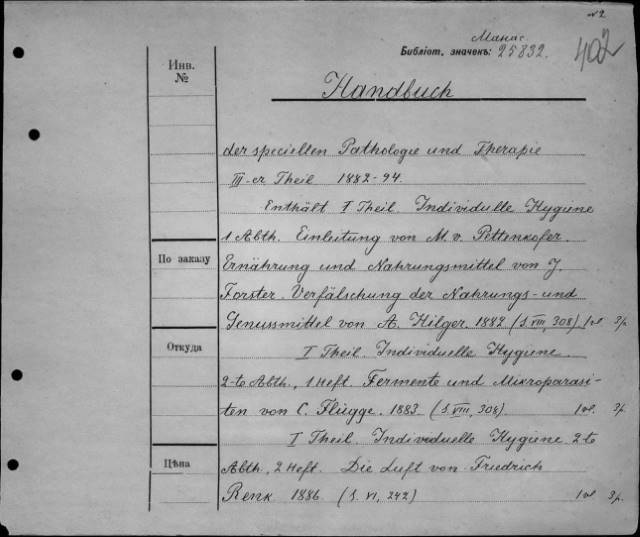 № 2
Манас.
Библіот. значекъ: 25832.
402
Инв.
№
Handbuch
der speciellen Pathologie und Therapie
III-er Theil 1882-94.
Enthält I Theil. Individuelle Hygiene
1 Abth. Einleitung von M. v. Pettenkofer.
По заказу
Ernährung und Nahrungsmittel von J.
Forster. Verfälschung der Nahrungs- und
Genussmittel von A. Hilger. 1882 (S. VIII, 308) 1 vl. 3р.
Откуда
I Theil. Individuelle Hygiene.
2-te Abth., 1 Heft. Fermente und Mikroparasi-
ten von C. Flügge. 1883 (S. VIII, 308). 1 vl. 3р.
I Theil. Individuelle Hygiene 2-te
Цѣна
Abth, 2 Heft. Die Luft von Friedrich
Renk 1886 (S. VI, 242) 1 vl 3р.